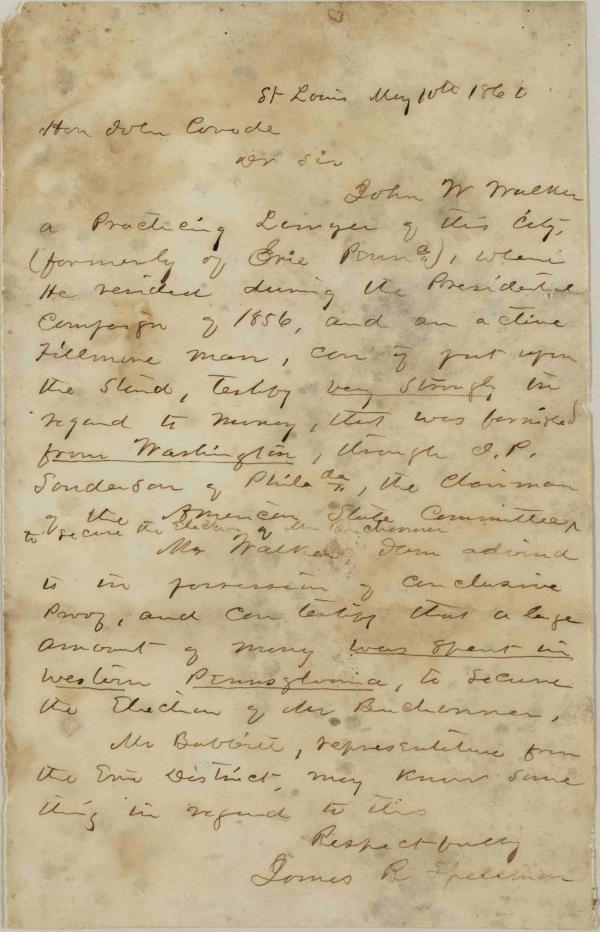 St Louis May 10th 1860
Hon John Covode
Dr Sir
John W Walker
a Practicing Lawyer of this City,
(formerly of Erie Penna), where
He resided during the Presidential
Campaign of 1856, and an active
Fillmore man, can if put upon
the Stand, testify very strongly in
regard to money, that was furnished
from Washington, through J. P.
Sanderson of Philada, the Chairman
of the American State Committee,
to secure the Election of Mr Buchanner
Mr Walker I am advised
is in possession of conclusive
Proof, and can testify that a large
amount of money was spent in
Western Pennsylvania, to secure
the Election of Mr Buchanner,
Mr Babbitt, representative from
the Erie District, may know some
thing in regard to this
Respectfully
James R Spellman